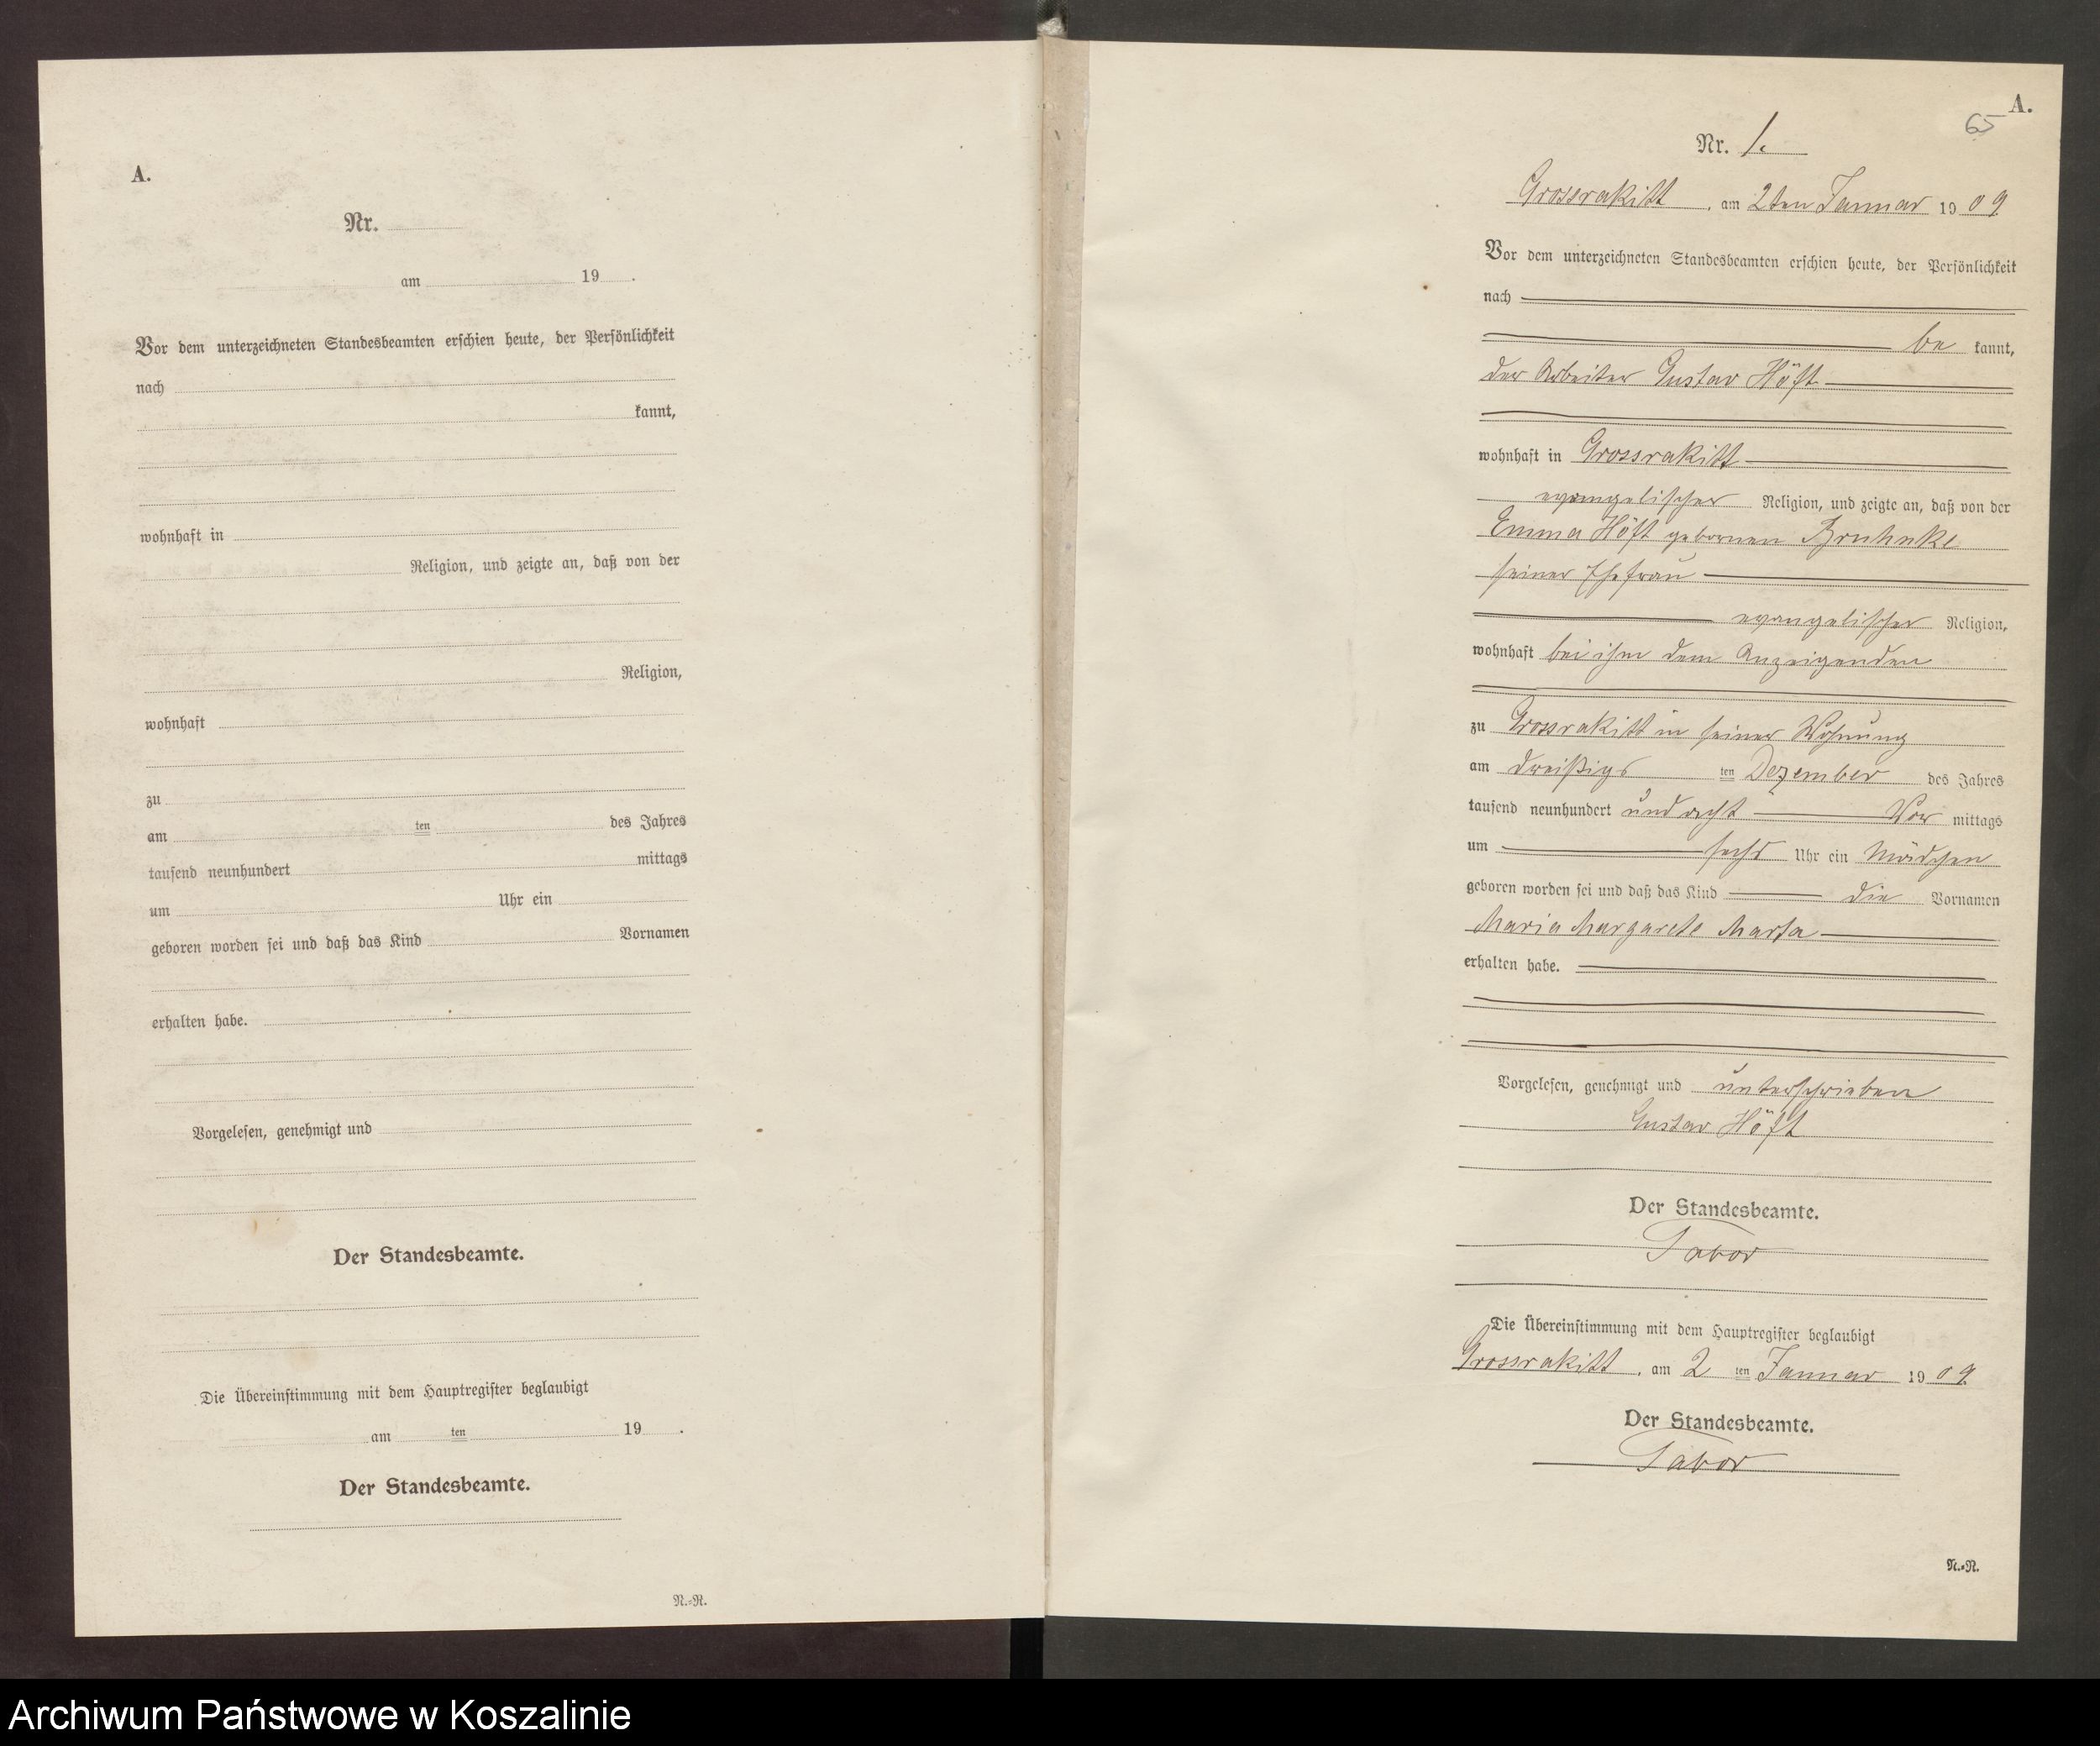 A.
Nr.
am 19 .
Vor dem unterzeichneten Standesbeamten erschien heute, der Persönlichkeit
nach
kannt,
wohnhaft in
Religion, und zeigte an, daß von der
Religion,
wohnhaft
zu
am ten des Jahres
tausend neunhundert mittags
um Uhr ein
geboren worden sei und daß das Kind Vornamen
erhalten habe.
Vorgelesen, genehmigt und
Der Standesbeamte.
Die Übereinstimmung mit dem Hauptregister beglaubigt
am ten 19 .
Der Standesbeamte.
N.=R.
A.
65
Nr. 1.
Grossrakitt, am 2ten Januar 1909
Vor dem unterzeichneten Standesbeamten erschien heute, der Persönlichkeit
nach
be kannt,
der Arbeiter Gustav Höft
wohnhaft in Grossrakitt
evangelischer Religion, und zeigte an, daß von der
Emma Höft gebornen Bruhnke
seiner Ehefrau
evangelischer Religion,
wohnhaft bei ihm dem Anzeigenden
zu Grossrakitt in seiner Wohnung
am dreißigs ten Dezember des Jahres
tausend neunhundert und acht Vor mittags
um sechs Uhr ein Mädchen
geboren worden sei und daß das Kind die Vornamen
Maria Margarete Marta
erhalten habe.
Vorgelesen, genehmigt und unterschrieben
Gustav Höft
Der Standesbeamte.
Tabor
Die Übereinstimmung mit dem Hauptregister beglaubigt
Grossrakitt, am 2 ten Januar 1909.
Der Standesbeamte.
Tabor
N.=R.
Archiwum Państwowe w Koszalinie